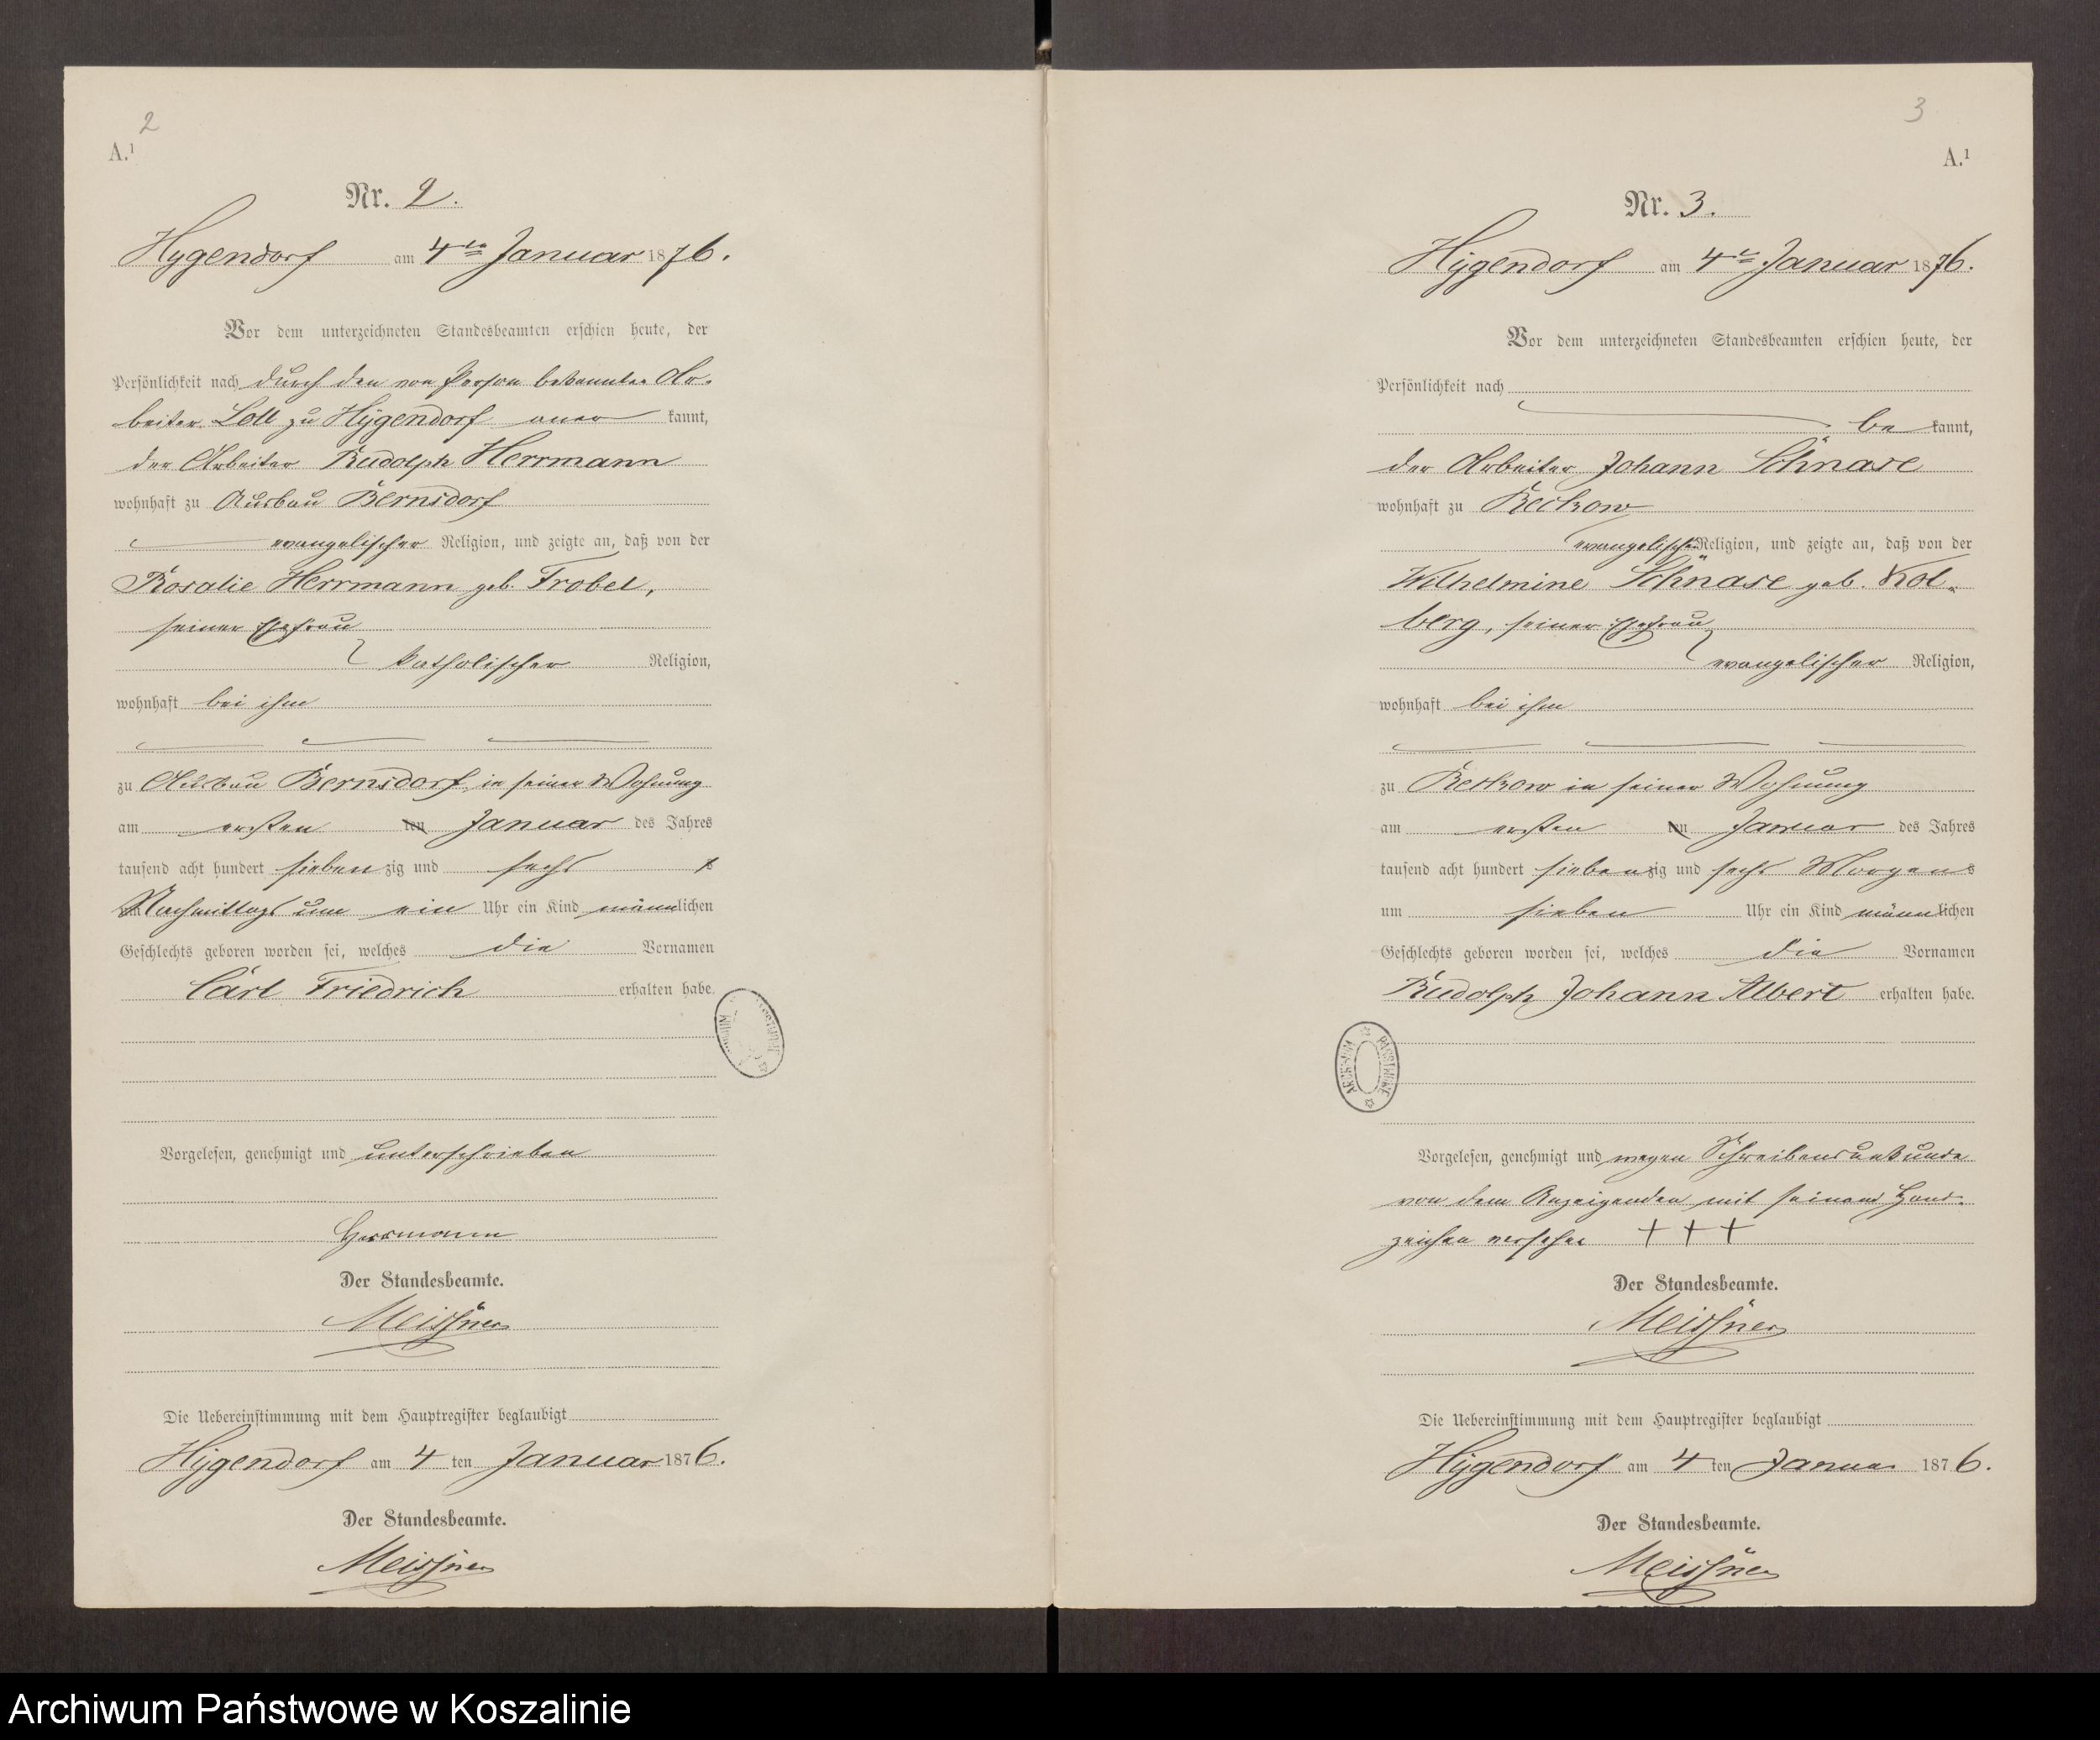 2
A.¹
Nr. 2.
Hygendorf am 4ten Januar 1876.
Vor dem unterzeichneten Standesbeamten erschien heute, der
Persönlichkeit nach durch den von Person bekannten Ar-
beiter Loll zu Hygendorf aner kannt,
der Arbeiter Rudolph Herrmann
wohnhaft zu Ausbau Bernsdorf
evangelischer Religion, und zeigte an, daß von der
Rosalie Herrmann geb. Frobel,
seiner Ehefrau
katholischer Religion,
wohnhaft bei ihm
zu Ausbau Bernsdorf in seiner Wohnung
am ersten ten Januar des Jahres
tausend acht hundert sieben zig und sechs
Nachmittags um ein Uhr ein Kind männlichen
Geschlechts geboren worden sei, welches die Vornamen
Carl Friedrich erhalten habe.
Vorgelesen, genehmigt und unterschrieben
Herrmann
Der Standesbeamte.
Meissner
Die Uebereinstimmung mit dem Hauptregister beglaubigt
Hygendorf am 4 ten Januar 1876.
Der Standesbeamte.
Meissner
3
A.¹
Nr. 3.
Hygendorf am 4ten Januar 1876.
Vor dem unterzeichneten Standesbeamten erschien heute, der
Persönlichkeit nach
be kannt,
der Arbeiter Johann Schnase
wohnhaft zu Reckow
evangelischer Religion, und zeigte an, daß von der
Wilhelmine Schnase geb. Kol-
berg, seiner Ehefrau
evangelischer Religion,
wohnhaft bei ihm
zu Reckow in seiner Wohnung
am ersten ten Januar des Jahres
tausend acht hundert siebenzig und sechs Morgens
um sieben Uhr ein Kind männlichen
Geschlechts geboren worden sei, welches die Vornamen
Rudolph Johann Albert erhalten habe.
ARCHIWUM PAŃSTWOWE
Vorgelesen, genehmigt und wegen Schreibensunkunde
von dem Anzeigenden mit seinem Hand-
zeichen versehen + + +
Der Standesbeamte.
Meissner
Die Uebereinstimmung mit dem Hauptregister beglaubigt
Hygendorf am 4 ten Januar 1876.
Der Standesbeamte.
Meissner
Archiwum Państwowe w Koszalinie